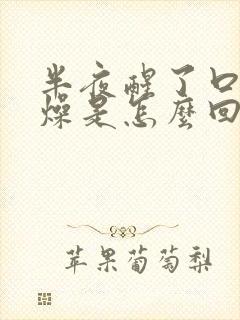 半夜醒了口
燥是怎麼回
苹果葡萄梨